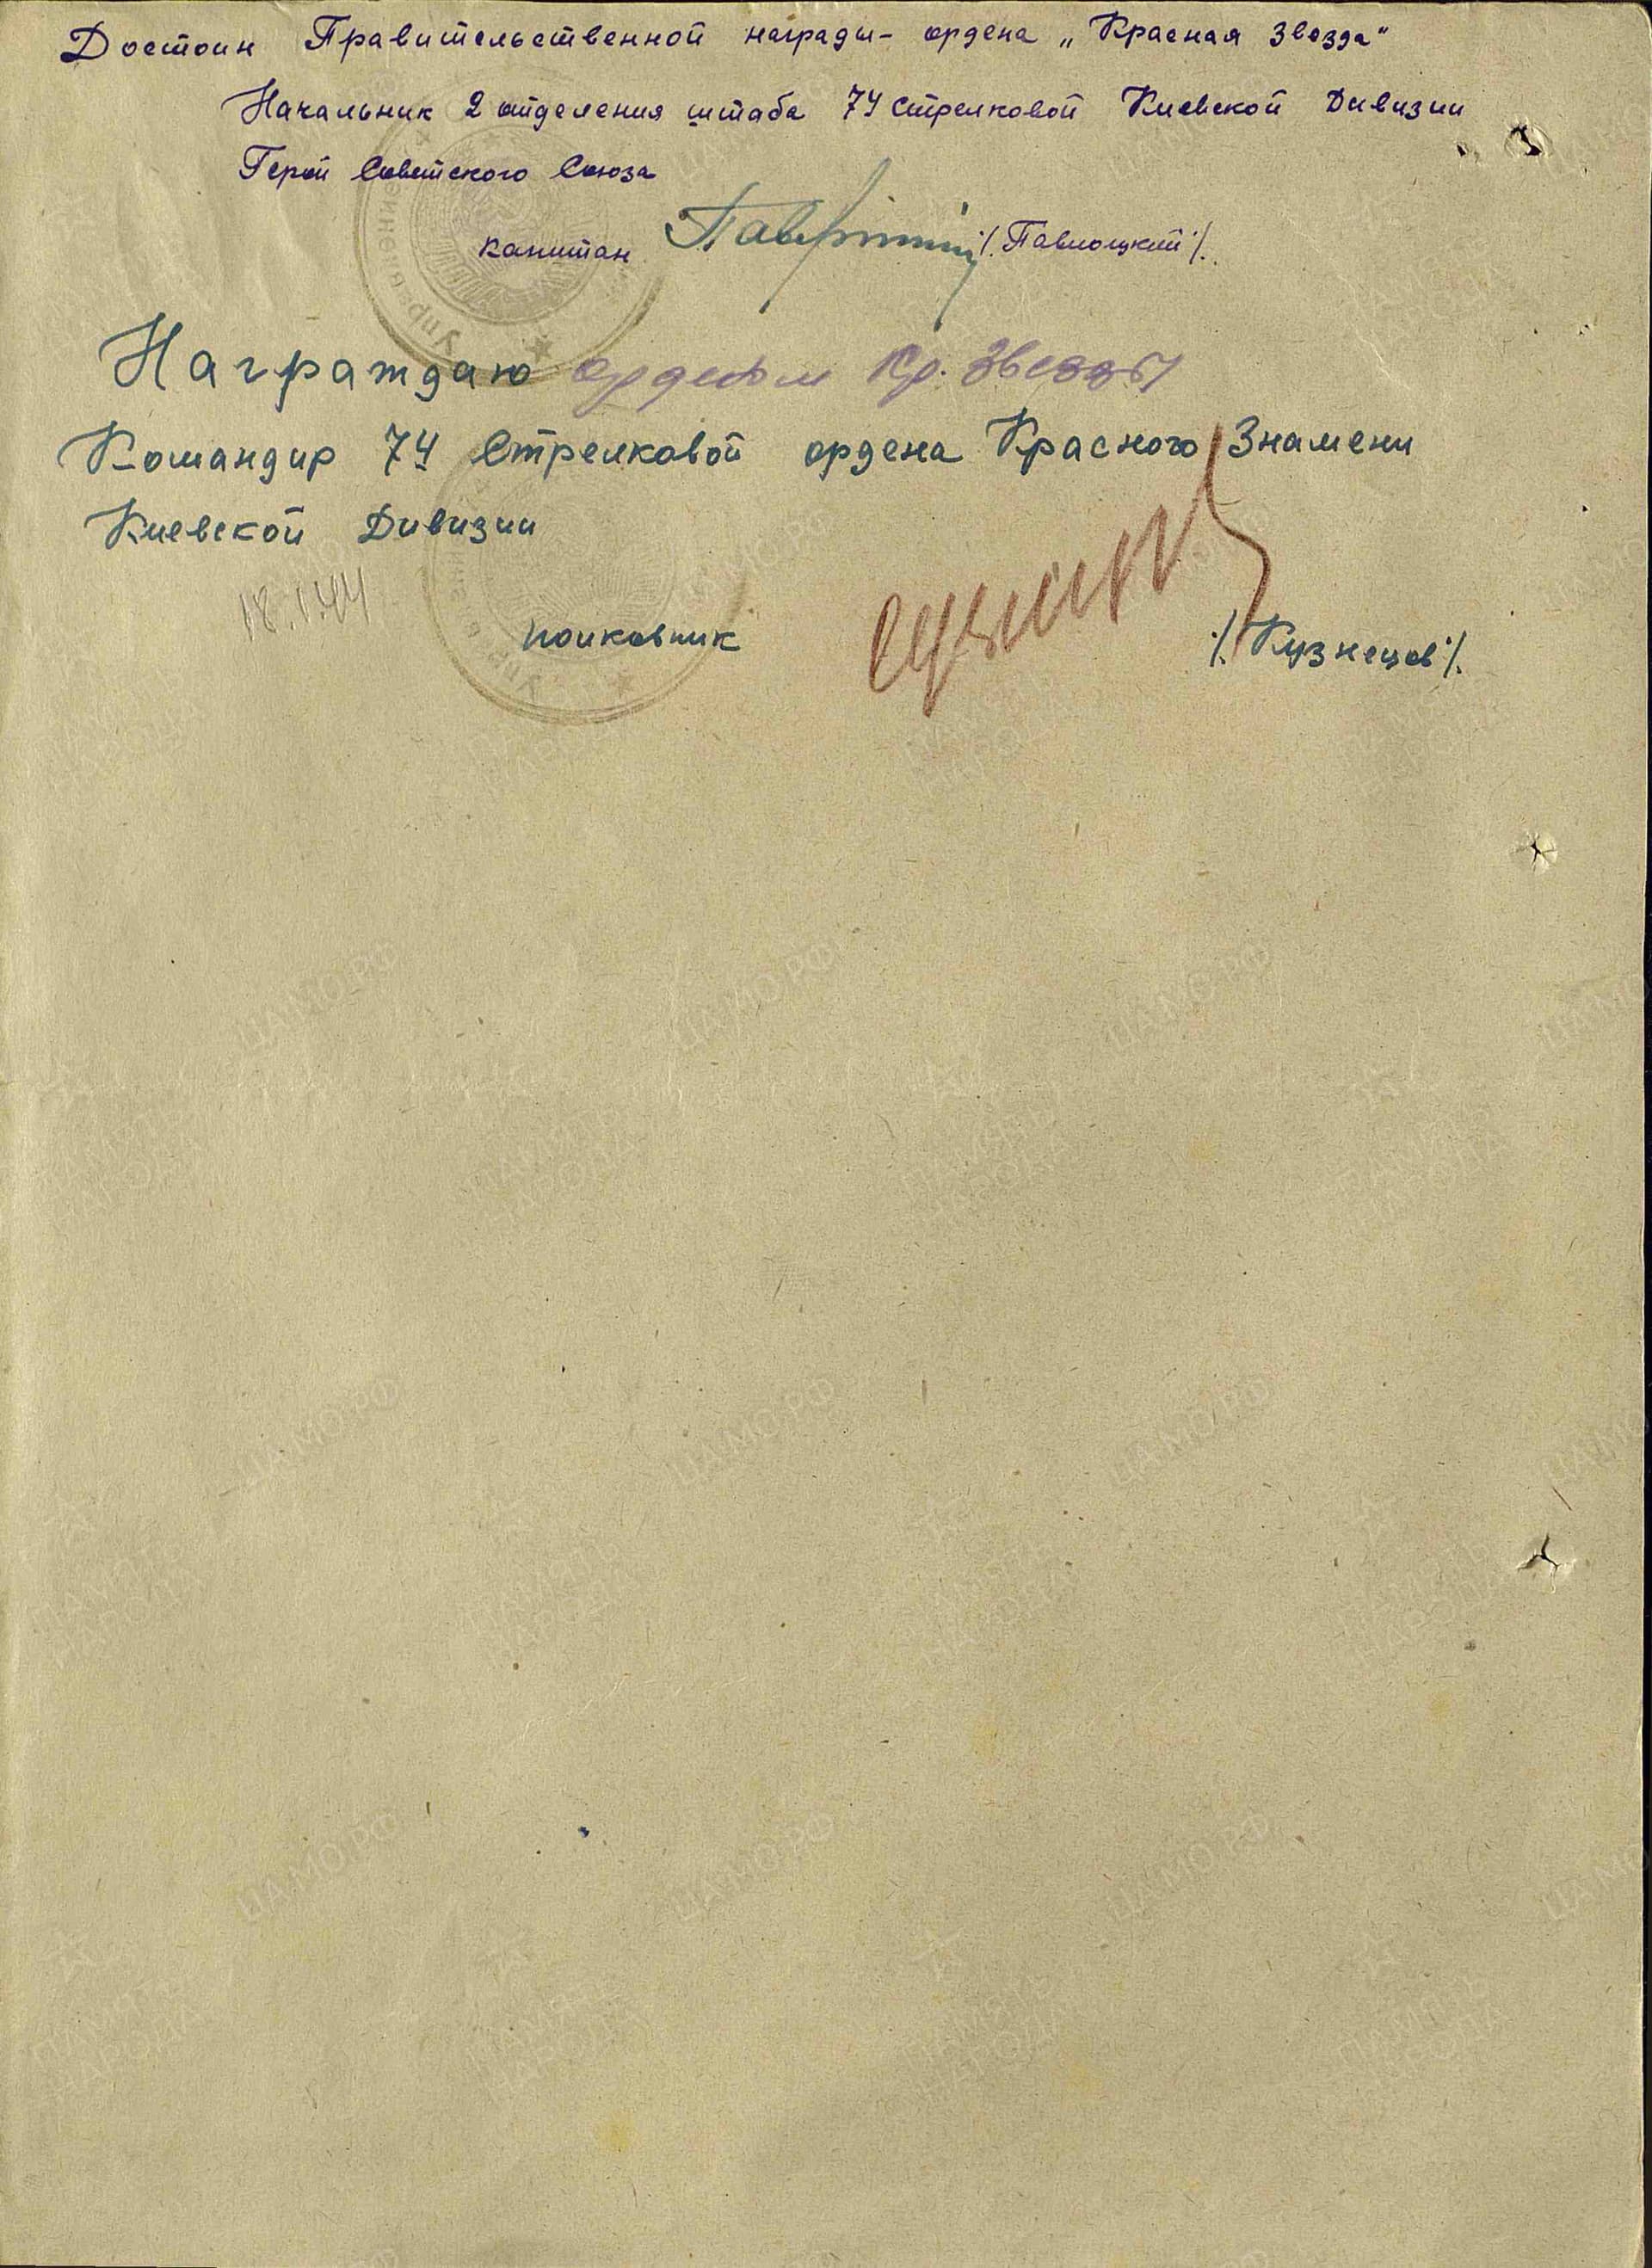 Достоин Правительственной награды - ордена „Красная Звезда"
Начальник 2 отделения штаба 74 Стрелковой Киевской Дивизии
Герой Советского Союза
капитан /Павлоцкий/.
Награждаю орденом Кр. Звезды
Командир 74 Стрелковой ордена Красного Знамени
Киевской Дивизии
18.1.44
полковник /Кузнецов/.